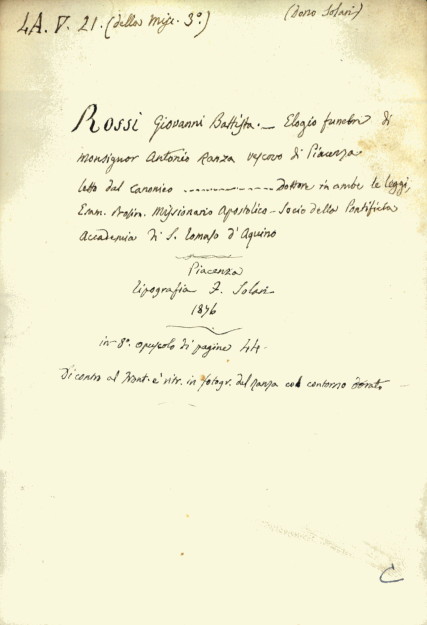 4A. V. 21. (della Misc. 3º.)
(Dono Solari)
Rossi Giovanni Battista. — Elogio funebre di
Monsignor Antonio Ranza vescovo di Piacenza
letto dal canonico ------------ dottore in ambe le leggi,
Missionario Apostolico - Socio della Pontificia
Accademia di S. Tomaso d'Aquino
Piacenza
tipografia F. Solari
1876
in 8º. opuscolo di pagine 44.
Di contro al front. è ritr. in fotogr. del Ranza col contorno dorato
C